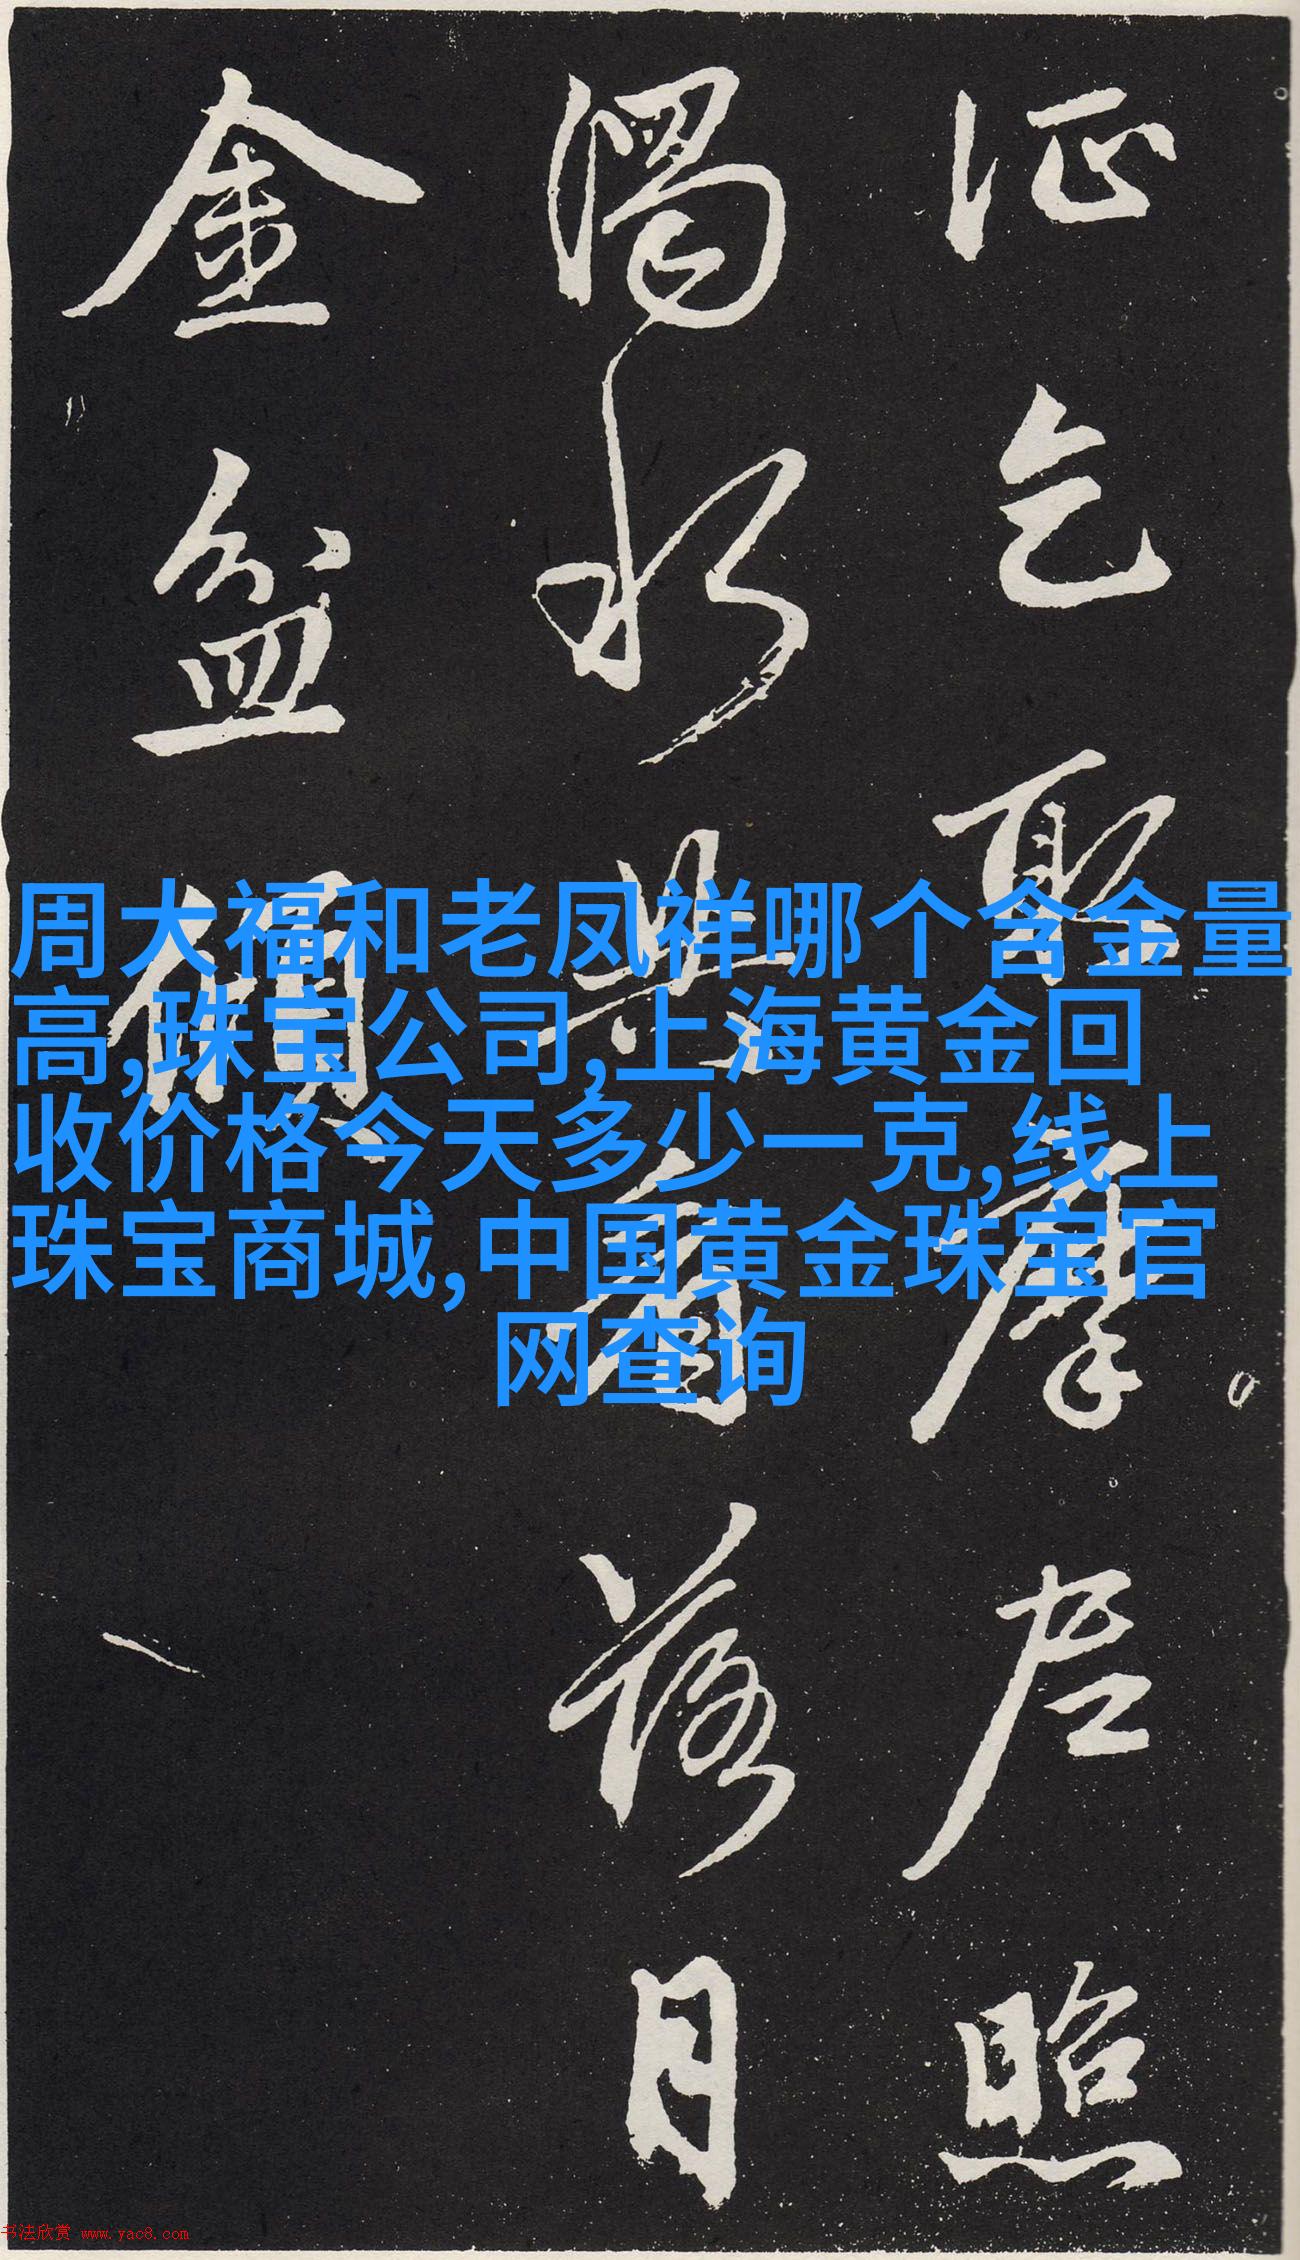 证乞聖摩尼照
濁水共看落月
金盆傾
周大福和老凤祥哪个含金量
高,珠宝公司,上海黄金回
收价格今天多少一克,线上
珠宝商城,中国黄金珠宝官
网查询
书法欣赏 www.yac8.com